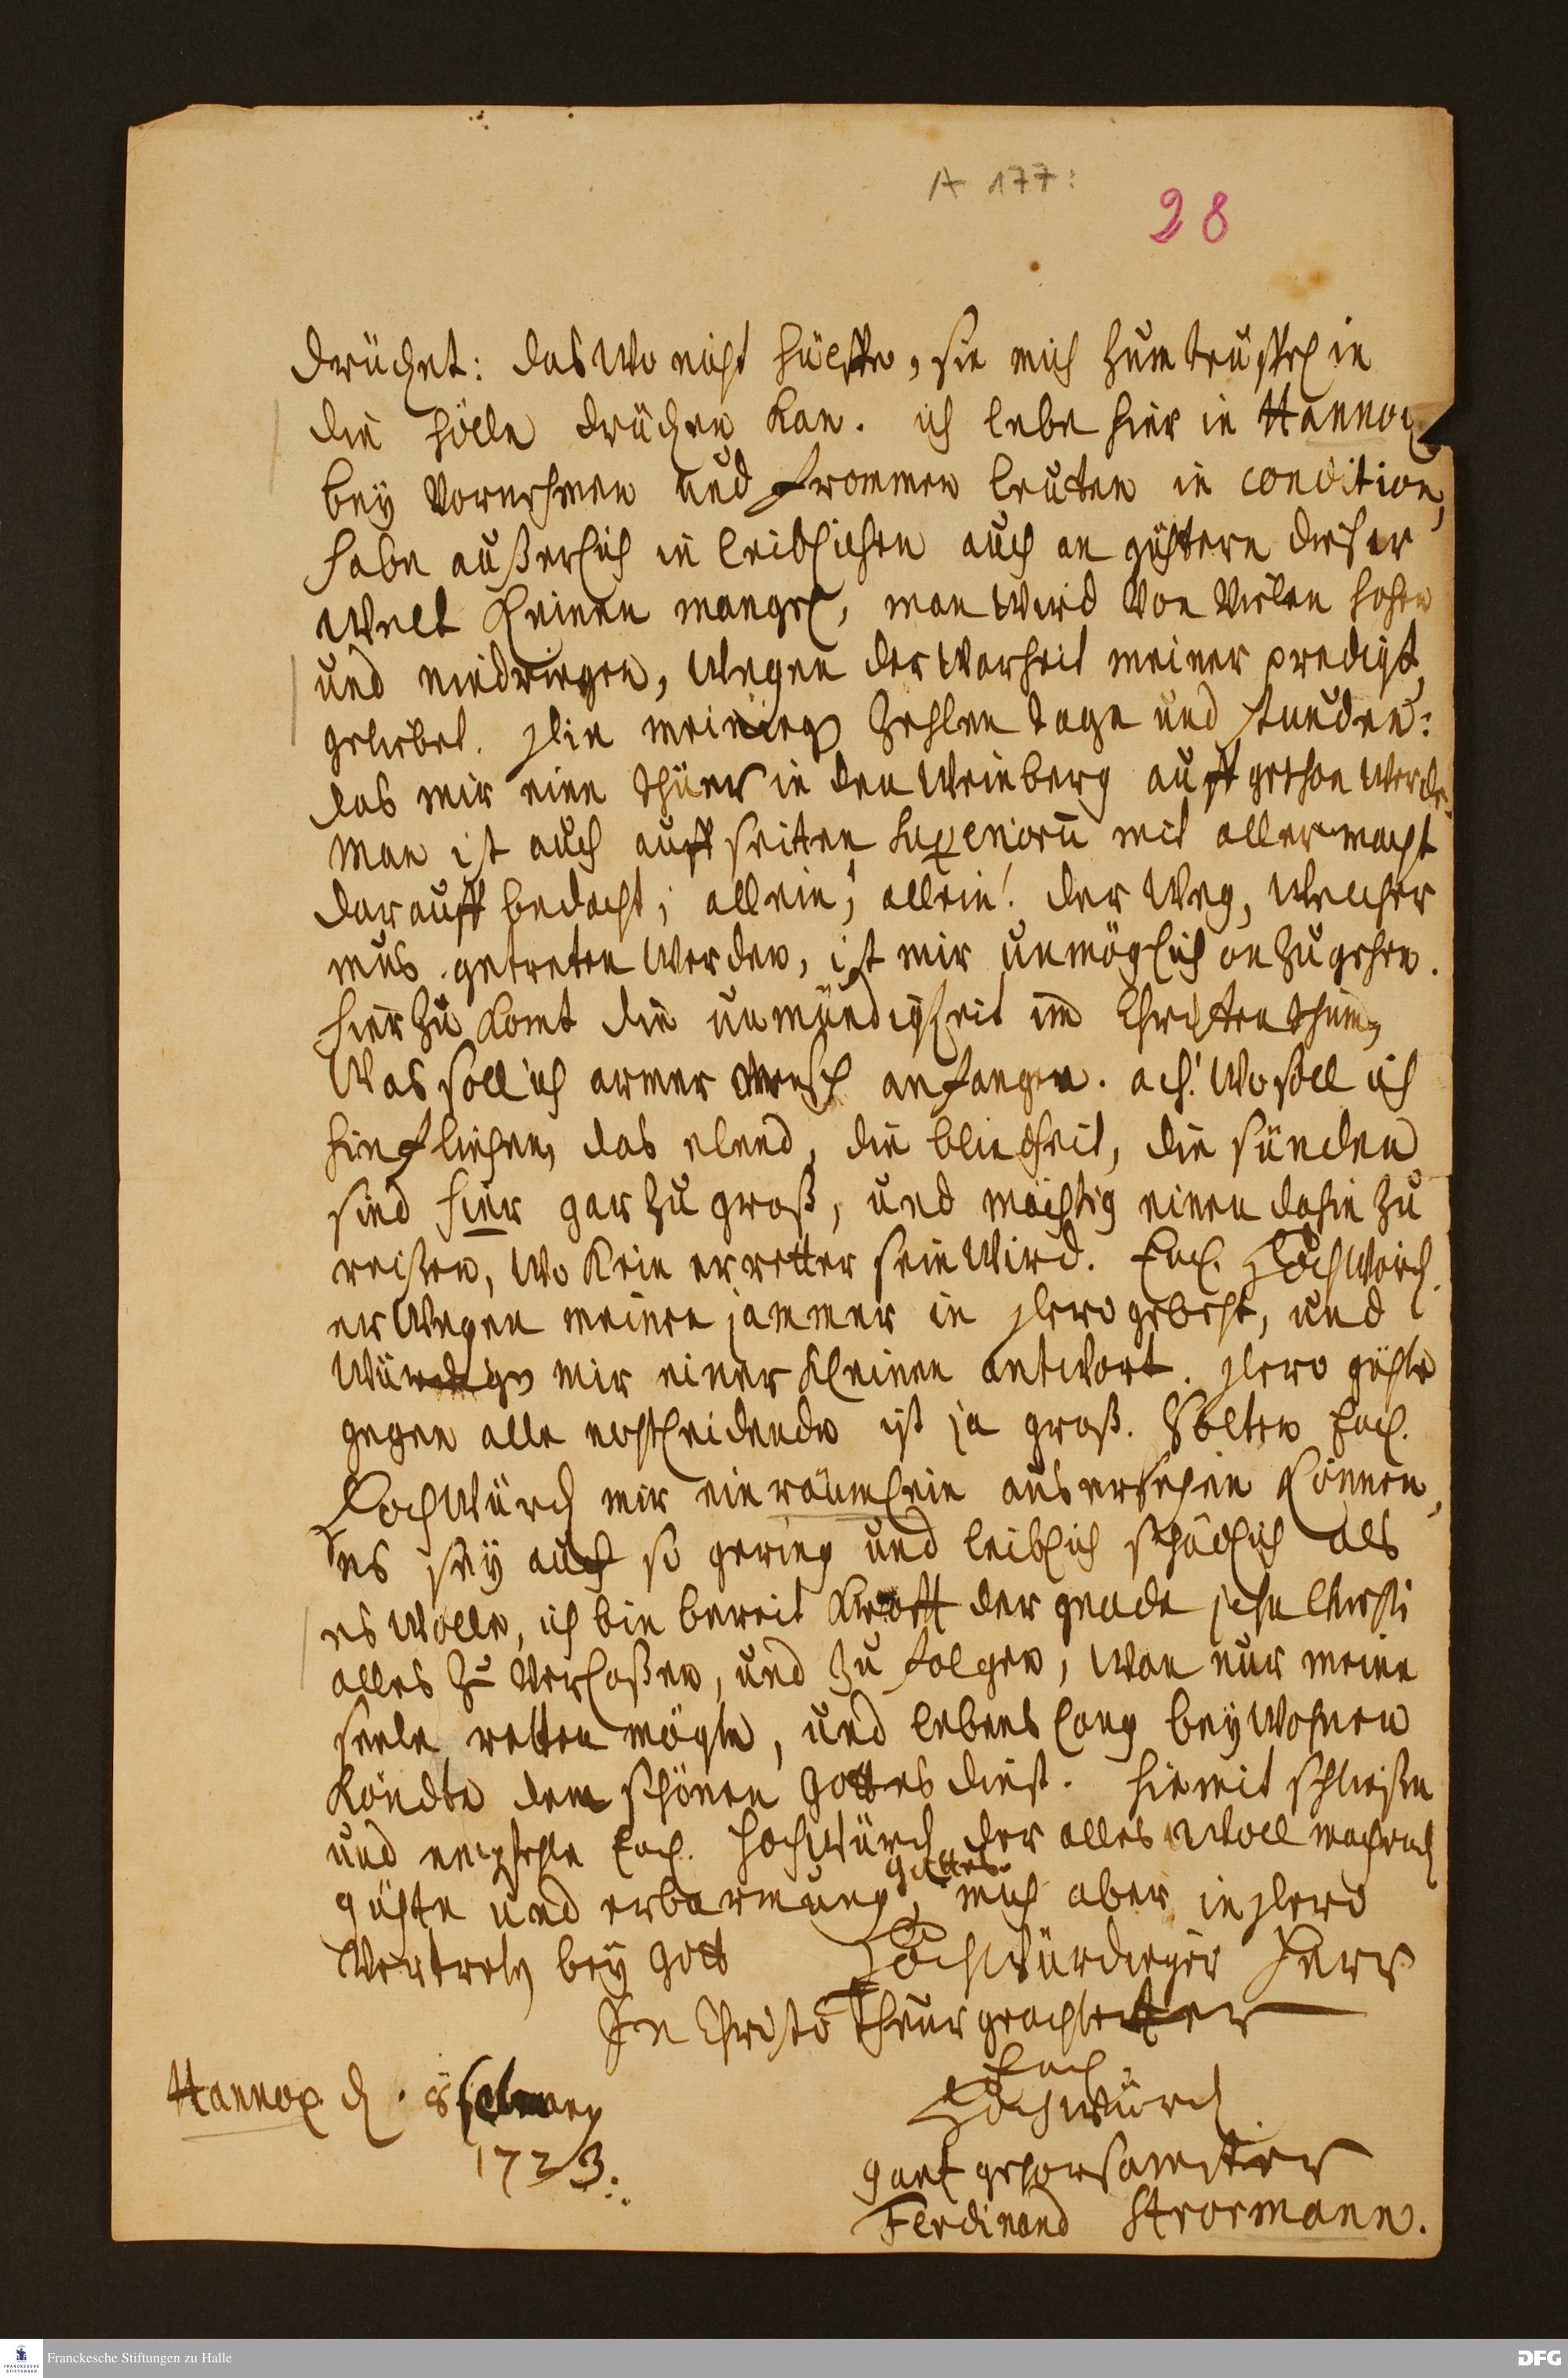 A 177:
28
drücket: das wo nicht hülffe, sie mich zum teuffel in
die hölle drücken kan. ich lebe hier in Hannov
bey vornehmen und frommen leuten in condition,
habe äußerlich in leiblichen auch an gühtern dieser
welt keinen mangel, man wird von vielen hohen
und niedriegen, wegen der warheit meiner predigt,
geliebet. die meinigen zehlen tage und stunden:
das mir eine thüer in den weinberg auffgethan werde
man ist auch auff seiten superiorū mit aller macht
darauff bedacht; allein, allein! der weg, welcher
mus getreten werden, ist mir unmöglich anzugehen.
hierzu komt die unmündigkeit im Christenthum,
was soll ich armer mensch anfangen. ach! wo soll ich
hin fliehen, das elend, die blindheit, die sünden
sind hier gar zu groß, und mächtig einen dahin zu
reißen, wo kein erretter sein wird. Ew. Hochwürd.
erwegen meinen jammer in dero gebeht, und
würdige mir einer kleinen antwort. dero gühte
gegen alle nohtleidende ist ja groß. Solten Ew.
Hochwürd mir ein räumlein ausersehen können,
es sey auch so gering und leiblich schädlich als
es wolle, ich bin bereit krafft der gnade jesu Christi
alles zu verlaßen, und zu folgen, wan nur meine
seele retten mögte, und lebens lang beywohnen
köndte dem schönen Gottes dienst. hiemit schließe
und empfehle Ew. Hochwürd der alles woll machend
Gottes
gühte und erbarmung, mich aber in dero
vertretg bey Gott Hochwürdieger Herr
In Christo theur geachtester
Ew.
Hannov. d. 8 
Hochwürd
1723.
gantz gehorsamster
Ferdinand Strormann.
Franckesche Stiftungen zu Halle
DFG